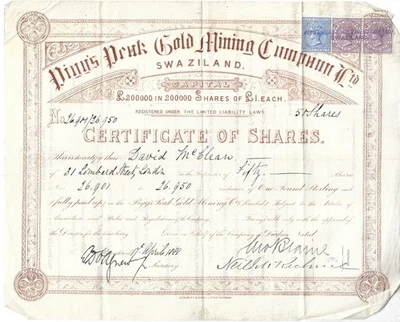 Pigg's Peak Gold Mining Company Ltd
SWAZILAND.
CAPITAL
£200000 IN 200000 SHARES OF £1. EACH.
REGISTERED UNDER THE LIMITED LIABILITY LAWS
No 26901/26950 50 Shares
CERTIFICATE OF SHARES.
This is to certify that David McClean
21 Lombard Street, London is the Proprietor of Fifty Shares
No 26.901 26.950 inclusive of One Pound Sterling each
(fully paid up) in the Pigg's Peak Gold Mining Co. (Limited) Subject to the Articles of
Association and Rules and Regulations of the Company. Transferable only with the approval of
the Directors
on Behalf of the Company at Natal
April 1888
Secretary